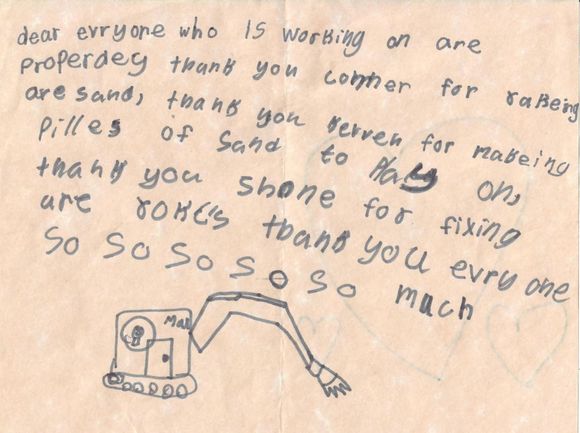 dear evryone who is working on are
properdey thank you conner for rakeing
are sand, thank you kerven for makeing
pilles of sand to play on,
thank you shone for fixing
are roke's thank you evry one
so so so so so much
Mat